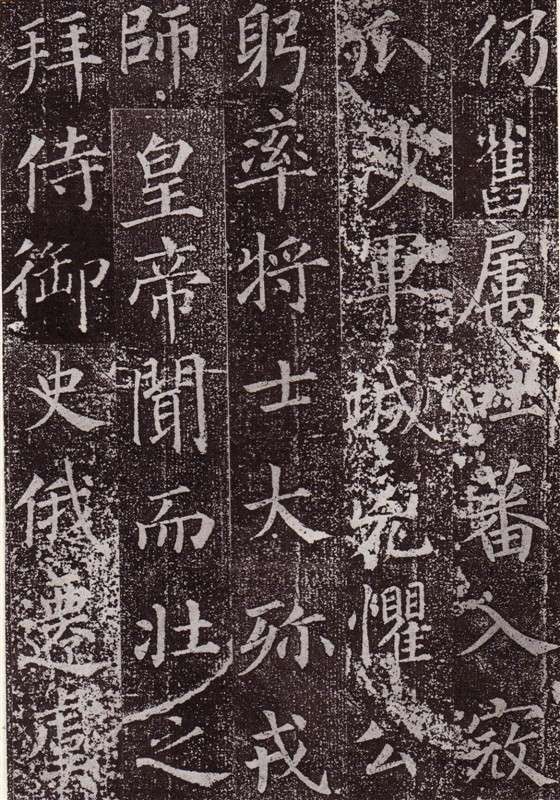 仍舊属吐蕃入寇
瓜沙軍城兇懼公
躬率將士大殄戎
師皇帝聞而壮之
拜侍御史俄遷虞